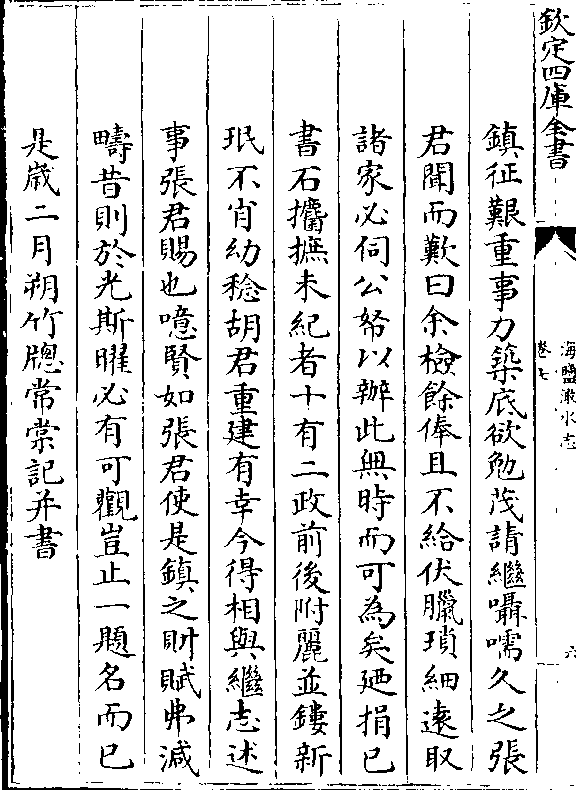 欽定四庫全書
海鹽澉水志
卷七
六
鎮征艱重事力築底欲勉茂請繼囁嚅久之張
君聞而歎曰余檢餘俸且不給伏臘瑣細遠取
諸家必伺公帑以辦此無時而可為矣廼捐已
書石攟摭未紀者十有二政前後附麗並鏤新
珉不肖幼稔胡君重建有幸今得相與繼志述
事張君賜也噫賢如張君使是鎮之財賦弗減
疇昔則於光斯曜必有可觀豈止一題名而已
是歲二月朔竹牕常棠記并書